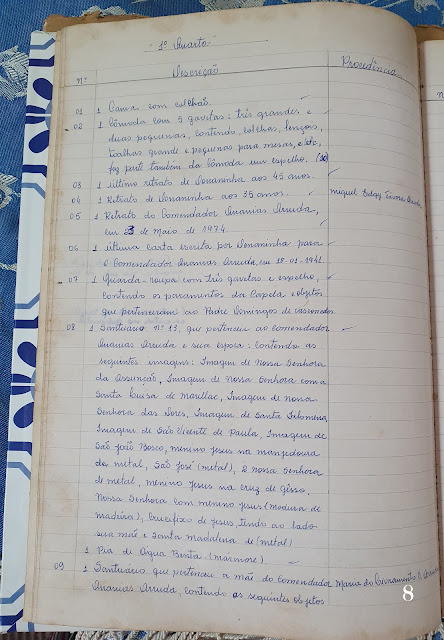 1º Quarto
nº Descreção Procedência
01 1 Cama com colchão.
02 1 Cômoda com 5 gavetas: três grandes e
duas pequenas, contendo, colchas, lençois,
toalhas grande e pequenas para mesas, e etc,
faz parte também da Cômoda um espelho.
03 1 último retrato de Donaninha aos 45 anos.
04 1 Retrato de Donaninha aos 35 anos. Miguel
05 1 Retrato do Comendador Ananias Arruda,
em 23 de Maio de 1974.
06 1 última carta escrita por Donaninha para
o Comendador Ananias Arruda, em 18-01-1941.
07 1 Guarda-roupa com três gavetas e espelho,
contendo os paramentos da Capela e objetos
que pertenceram ao Padre Domingos de Vasconcelos
08 1 Santuário nº 13, que pertenceu ao Comendador
Ananias Arruda e sua esposa: Contendo as
seguintes imagens: Imagem de Nossa Senhora
da Assunção, Imagem de Nossa Senhora com a
Santa Luisa de Marillac, Imagem de Nossa
Senhora das Dores, Imagem de Santa Filomena
Imagem de São Vicente de Paula, Imagem de
São João Bosco, menino Jesus na manjedoura
de metal, São José (metal), 2 Nossa Senhora
de metal, menino Jesus na cruz de gesso,
Nossa Senhora com menino Jesus (moldura de
madeira), Crucifixo de Jesus, tendo ao lado
sua mãe e Santa Madalena de (metal)
1 Pia de Água Benta (mármore)
09 1 Santuário que pertenceu a mãe do Comendador Maria do Livramento
Ananias Arruda, contendo as seguintes objetos
8